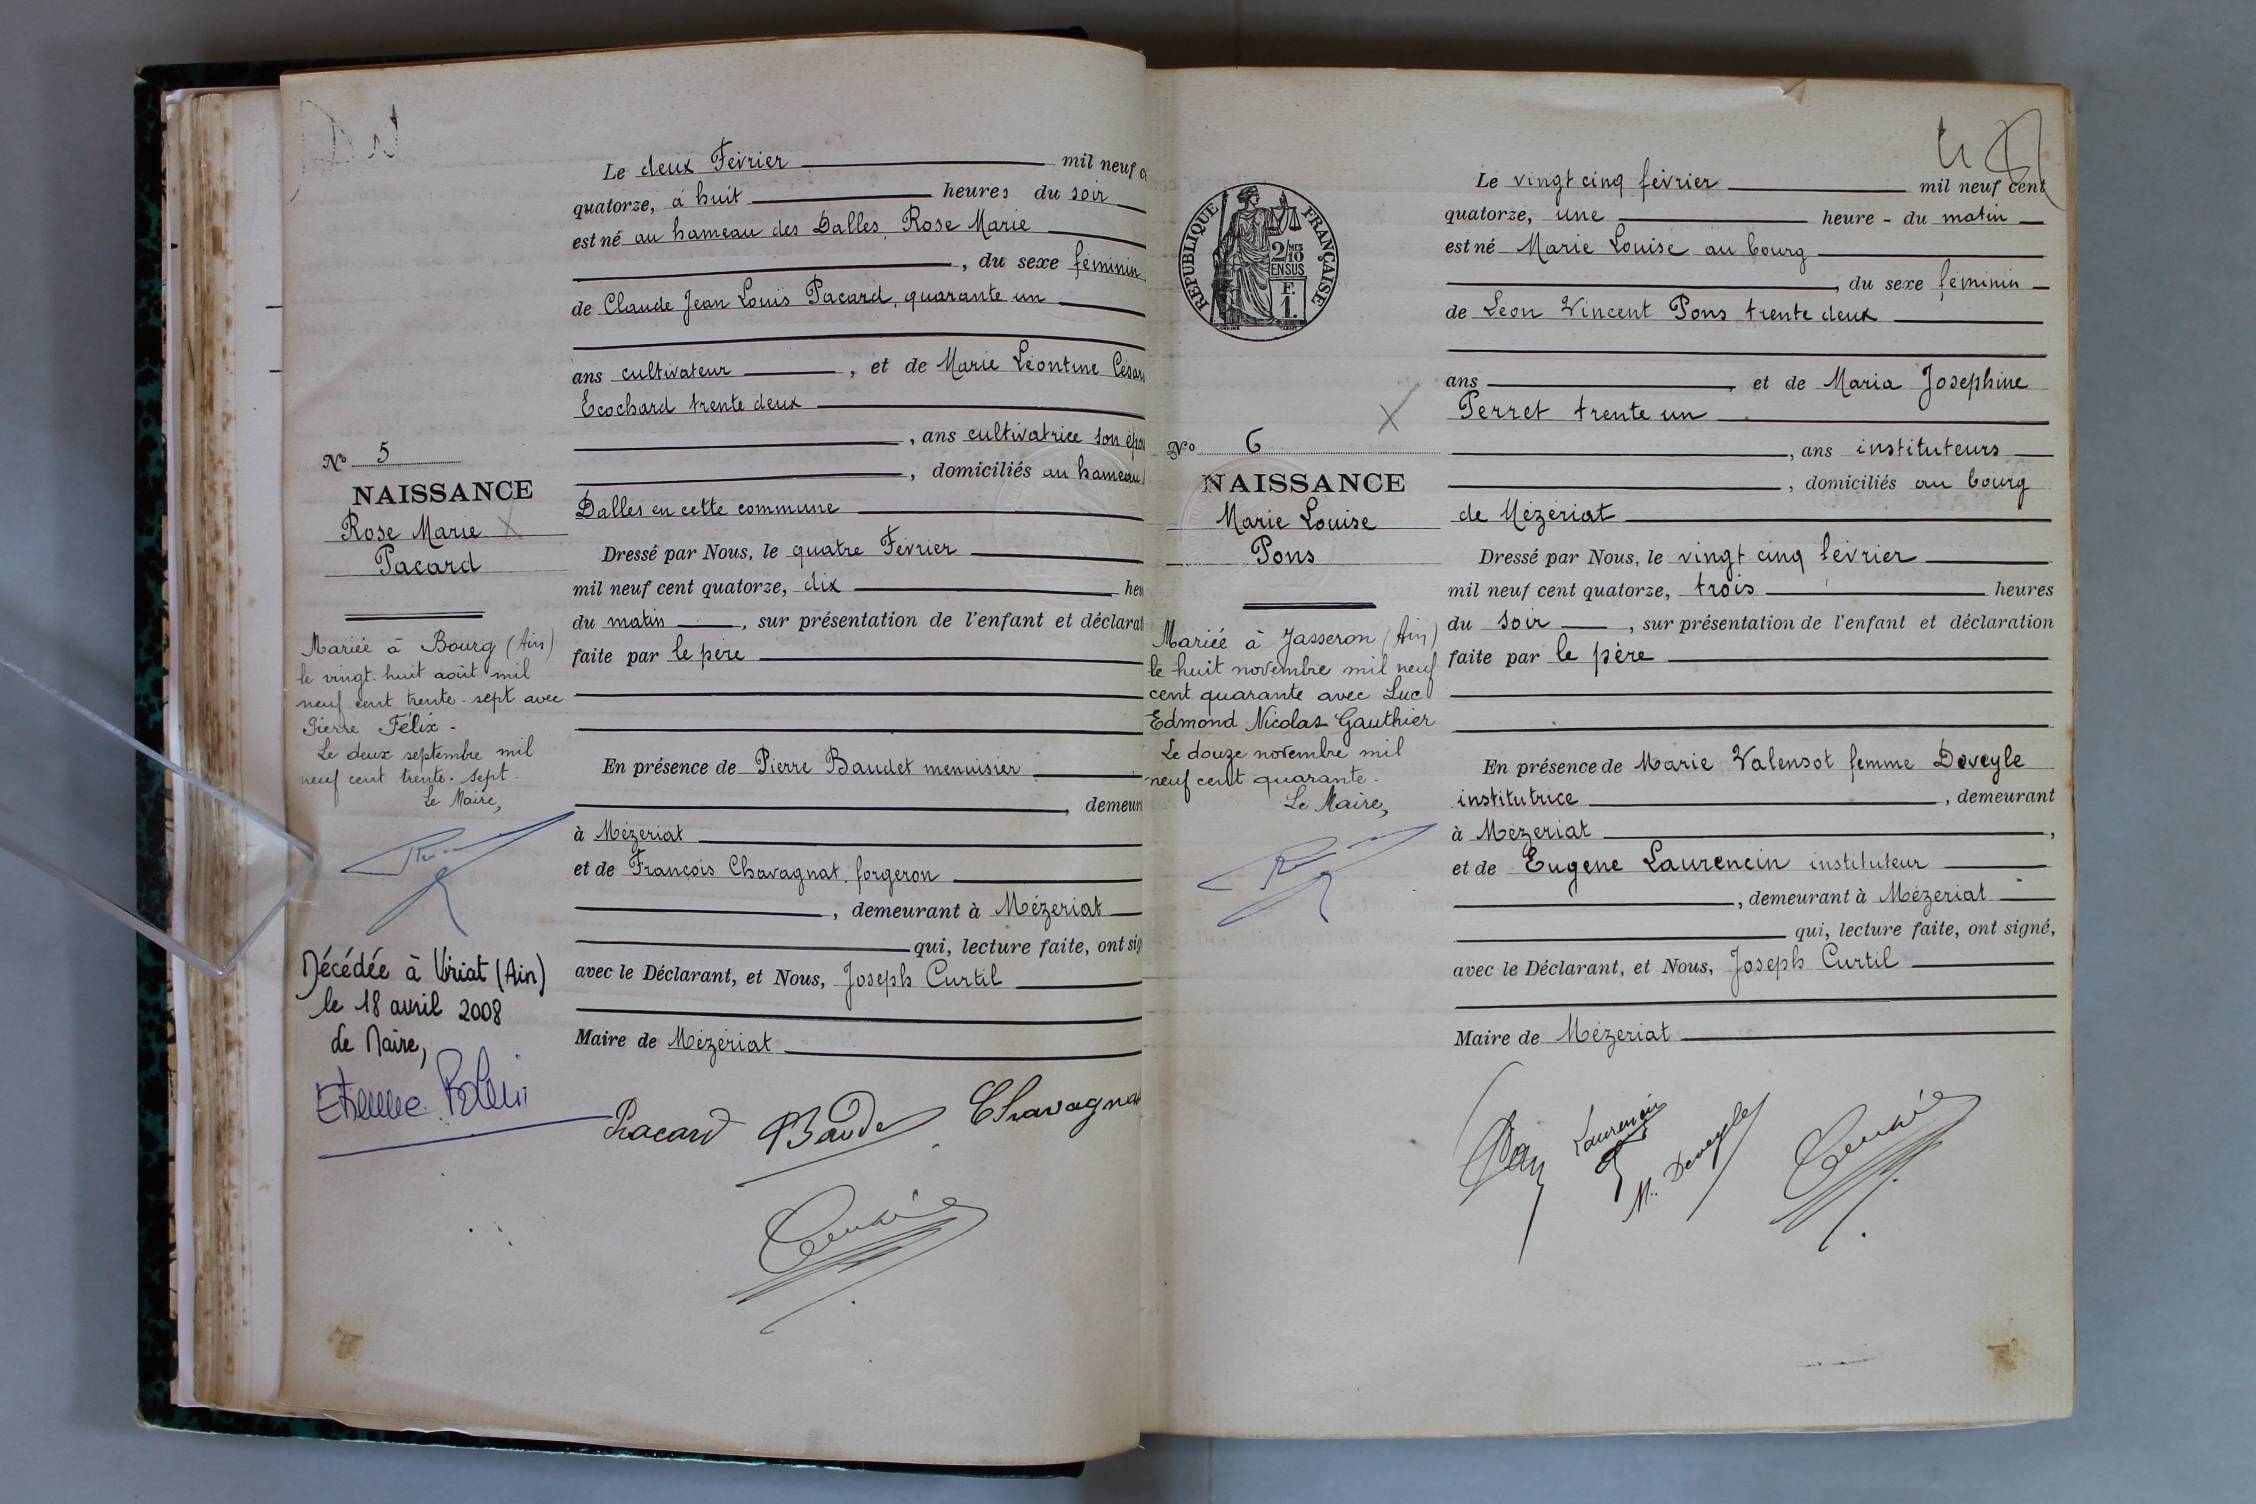 Le deux Février mil neuf
quatorze, à huit heures du soir
est né au hameau des Dalles, Rose Marie
, du sexe féminin
de Claude Jean Louis Pacard, quarante un
ans cultivateur, et de Marie Léontine
Ecochard trente deux
, ans cultivatrice son
, domiciliés au hameau
Dalles en cette commune
Dressé par Nous, le quatre Février
mil neuf cent quatorze, dix
du matin, sur présentation de l'enfant et
faite par le père
En présence de Pierre Baudet menuisier
à Mézériat
et de François Chavagnat, forgeron
, demeurant à Mézériat
qui, lecture faite, ont
avec le Déclarant, et Nous, Joseph Curtil
Maire de Mézériat
Pacard Baudet Chavagnat
N° 5
NAISSANCE
Rose Marie
Pacard
Mariée à Bourg (Ain)
le vingt-huit août mil
neuf cent trente-sept avec
Pierre Félix -
Le deux septembre mil
neuf cent trente-sept.
Le Maire,
Décédée à Viriat (Ain)
le 18 avril 2008
Le Maire,
RÉPUBLIQUE FRANÇAISE
2/10 MES
EN SUS
F.
1.
Le vingt cinq février mil neuf cent
quatorze, une heure - du matin
est né Marie Louise au bourg
, du sexe féminin
de Léon Vincent Pons trente deux
ans, et de Maria Josephine
Perret trente un
, ans instituteurs
, domiciliés au bourg
de Mézériat
Dressé par Nous, le vingt cinq février
mil neuf cent quatorze, trois heures
du soir, sur présentation de l'enfant et déclaration
faite par le père
En présence de Marie Valensot femme Deveyle
institutrice, demeurant
à Mézériat,
et de Eugène Laurencin instituteur
, demeurant à Mézériat
qui, lecture faite, ont signé,
avec le Déclarant, et Nous, Joseph Curtil
Maire de Mézériat
Pons Laurencin M. Deveyle
N° 6
NAISSANCE
Marie Louise
Pons
Mariée à Jasseron (Ain)
le huit novembre mil neuf
cent quarante avec Luc
Edmond Nicolas Gauthier
Le douze novembre mil
neuf cent quarante.
Le Maire,